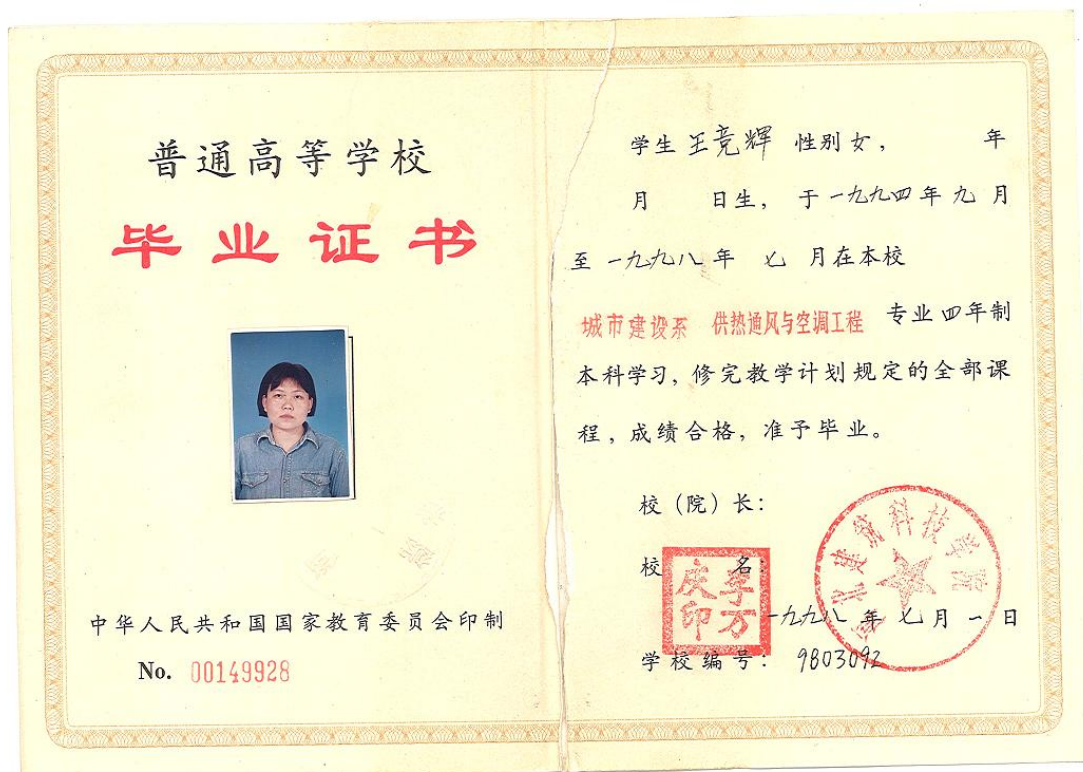 普通高等学校
毕业证书
中华人民共和国国家教育委员会印制
No. 00149928
学生 王竞辉 性别 女， 年
月 日生，于一九九四年九月
至一九九八年 七 月在本校
城市建设系 供热通风与空调工程 专业四年制
本科学习，修完教学计划规定的全部课
程，成绩合格，准予毕业。
校（院）长：
校 名：
李万庆印
河北建筑科技学院
一九九八年七月一日
学校编号： 9803092